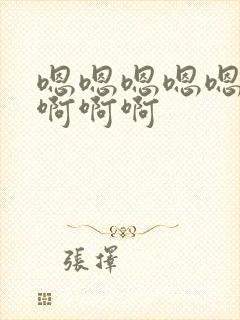 嗯嗯嗯嗯嗯
啊啊啊
張擇